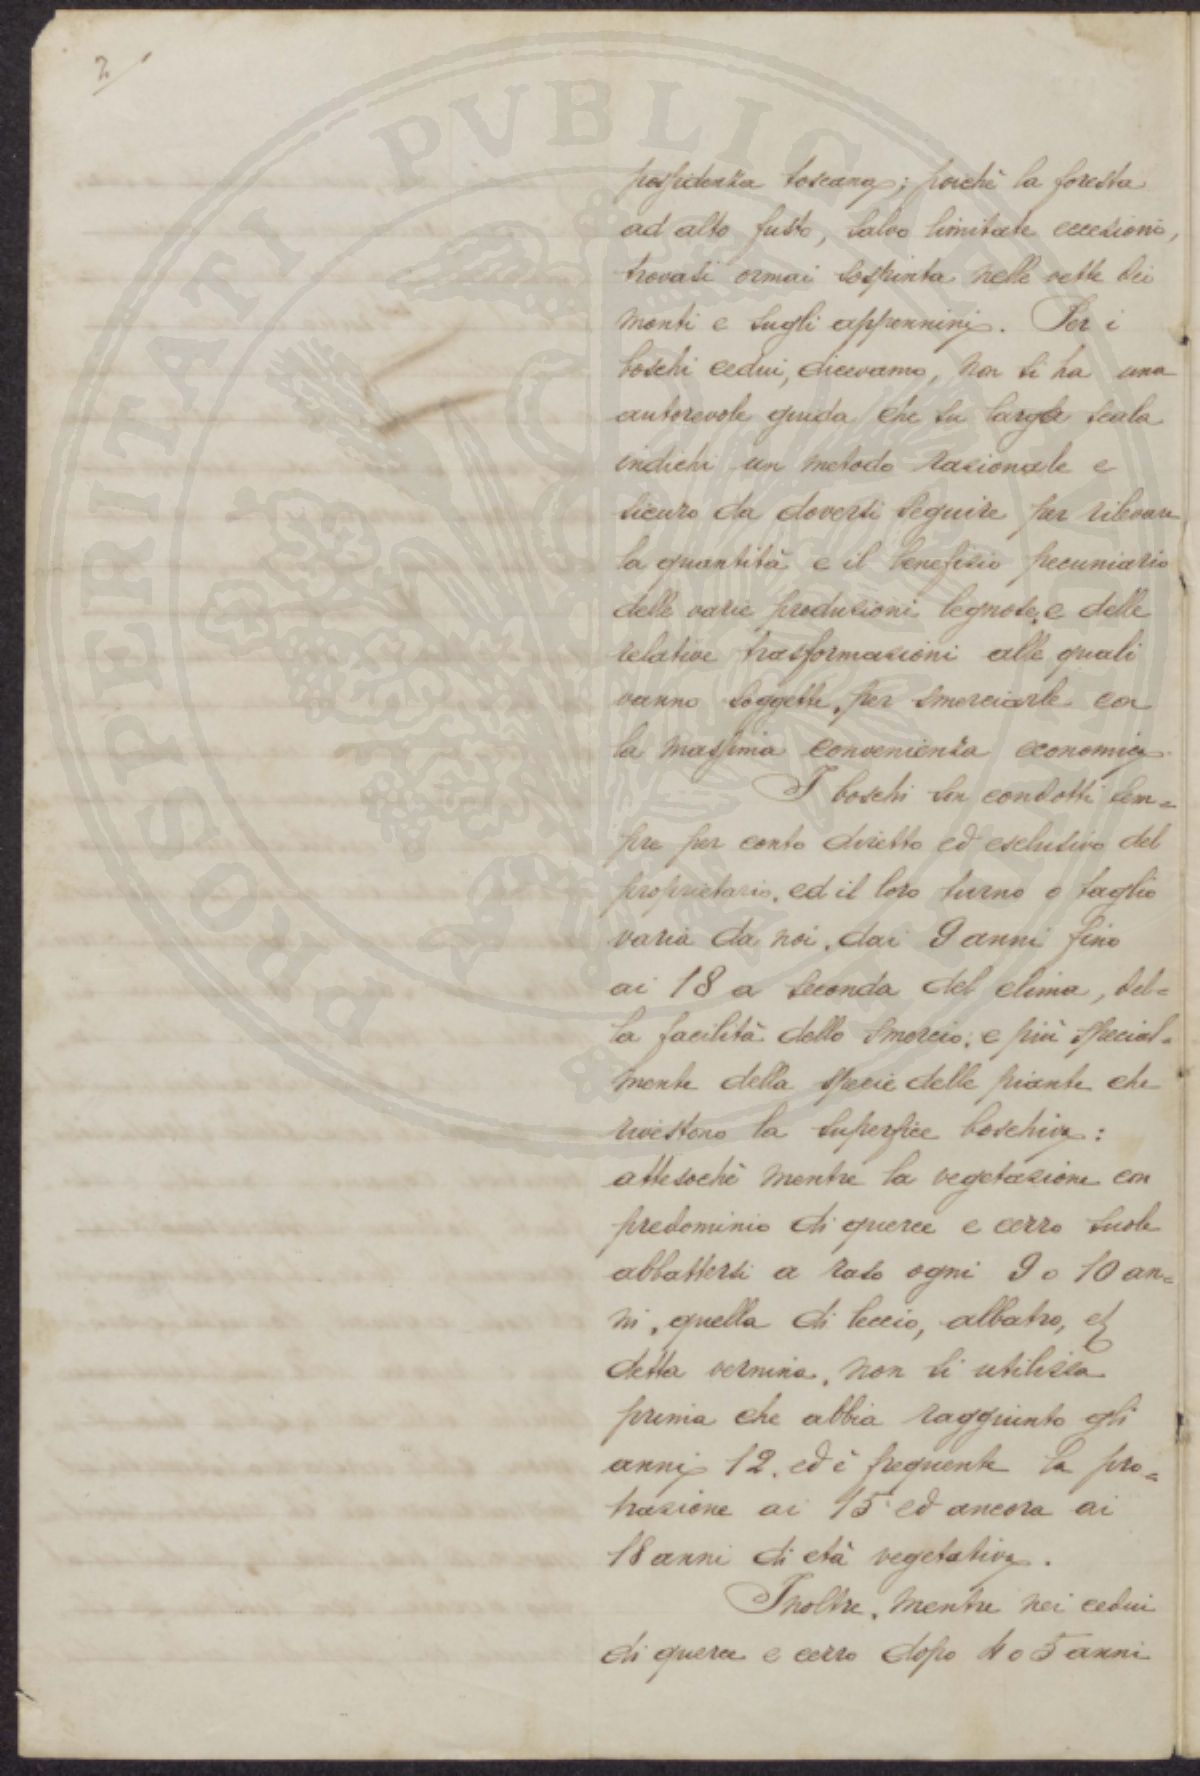 2
possidenza toscana; poichè la foresta
ad alto fusto, salvo limitate eccezioni,
trovasi ormai sospinta nelle vette dei
monti e sugli appennini. Per i
boschi cedui, dicevamo, non si ha una
autorevole guida che su larga scala
indichi un metodo razionale e
sicuro da doversi seguire per rilevare
la quantità e il benefizio pecuniario
delle varie produzioni legnose, e delle
relative trasformazioni alle quali
vanno soggette, per smerciarle con
la massima convenienza economica.
I boschi son condotti sem=
pre per conto diretto ed esclusivo del
proprietario, ed il loro turno o taglio
varia da noi, dai 9 anni fino
ai 18 a seconda del clima, del=
la facilità dello smercio, e più special=
mente della specie delle piante che
rivestono la superfice boschiva:
attesochè mentre la vegetazione con
predominio di querce e cerro suole
abbattersi a raso ogni 9 o 10 an=
ni, quella di leccio, albatro, &
detta vernina, non si utilizza
prima che abbia raggiunto gli
anni 12, ed è frequente la pro=
trazione ai 15 ed ancora ai
18 anni di età vegetativa.
Inoltre, mentre nei cedui
di querce e cerro dopo 4 o 5 anni
PROSPERITATI PVBLICAE